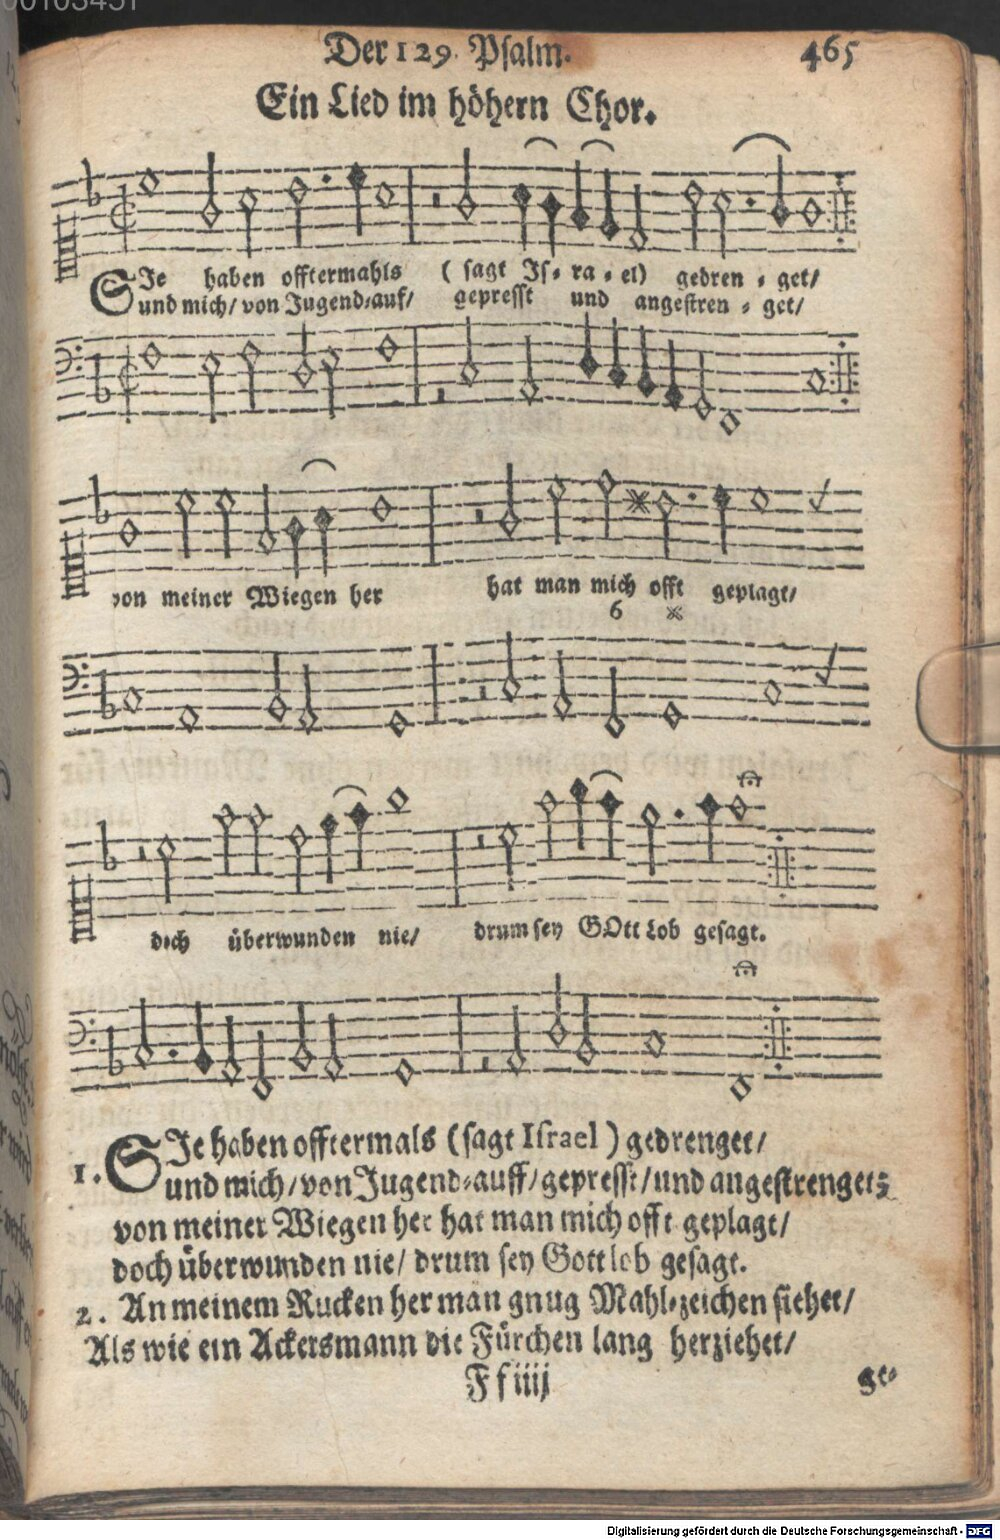 00103451
Der 129. Psalm. 465
Ein Lied im höhern Chor.
SJe haben offtermahls ( sagt Js- ra - el) gedren - get/
und mich/ von Jugend-auf/ gepresst und angestren - get/
von meiner Wiegen her hat man mich offt geplagt/
6 ※
doch überwunden nie/ drum sey GOtt Lob gesagt.
1. SJe haben offtermals (sagt Israel) gedrenget/
und mich/ von Jugend-auff/ gepresst/ und angestrenget;
von meiner Wiegen her hat man mich offt geplagt/
doch überwunden nie/ drum sey Gott lob gesagt.
2. An meinem Rucken her man gnug Mahl-zeichen siehet/
Als wie ein Ackersmann die Fürchen lang herziehet/
Ff iiij ge-
Digitalisierung gefördert durch die Deutsche Forschungsgemeinschaft - DFG